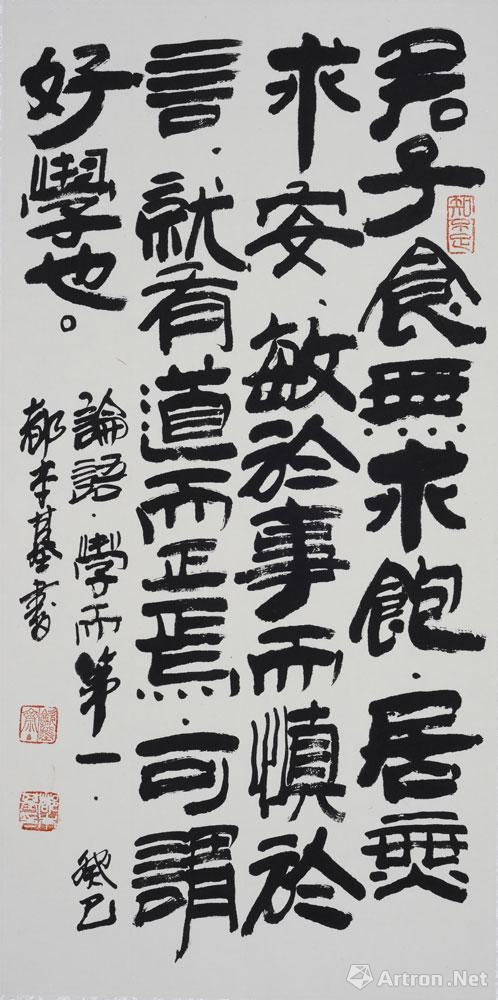 君子食無求飽·居無
求安·敏於事而慎於
言·就有道而正焉·可謂
好學也。
論語·學而第一·癸巳
都本基書
知不足
Artron.Net